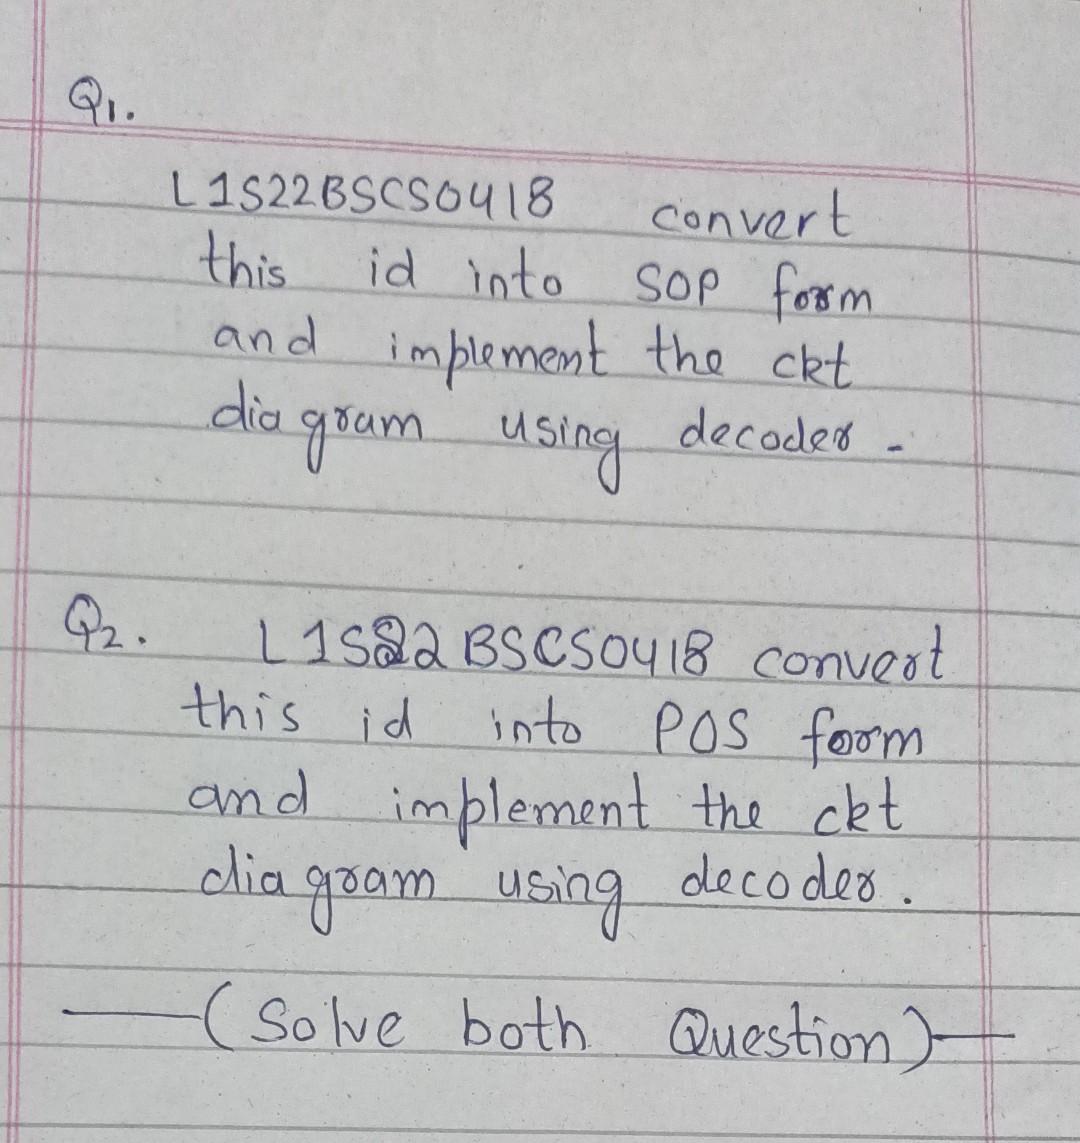 Q1.
L1S22BSCS0418 convert
this id into SOP form
and implement the ckt
diagram using decoder.
Q2. L1S22BSCS0418 convert
this id into POS form
and implement the ckt
diagram using decoder.
(Solve both Question)